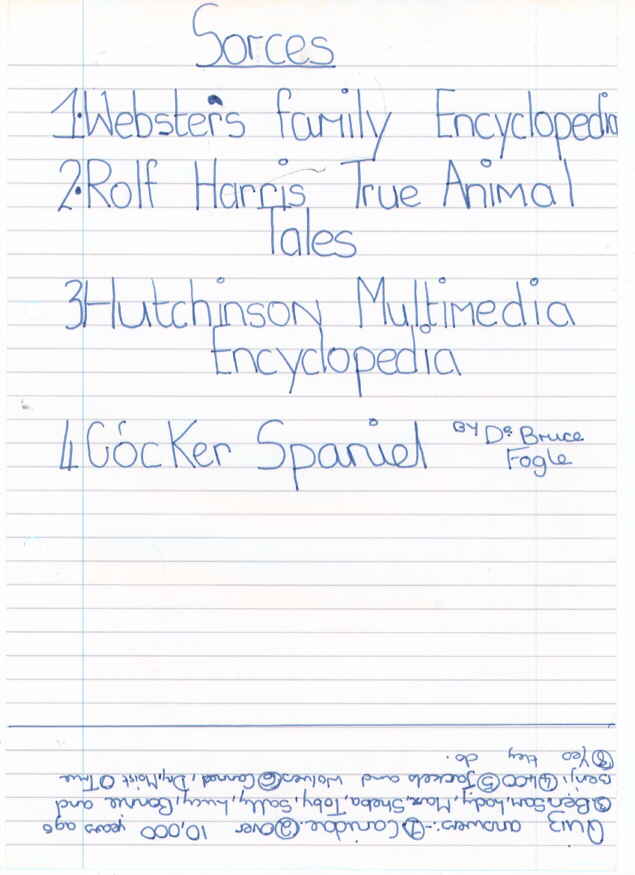 Sorces
1.Webster's family Encyclopedia
2.Rolf Harris True Animal
Tales
3Hutchinson Multimedia
Encyclopedia
4.Cocker Spaniel BY Dr Bruce
Fogle
Quiz answers:-①Canidae.②over 10,000 years ago
③Ben,Sam,Lady,Max,Sheba,Toby,Sally,Lucy,Bonnie and
Benji④400⑤Jackels and Wolves⑥Canned,Dry,Moist ⑦True
⑧Yes they do.